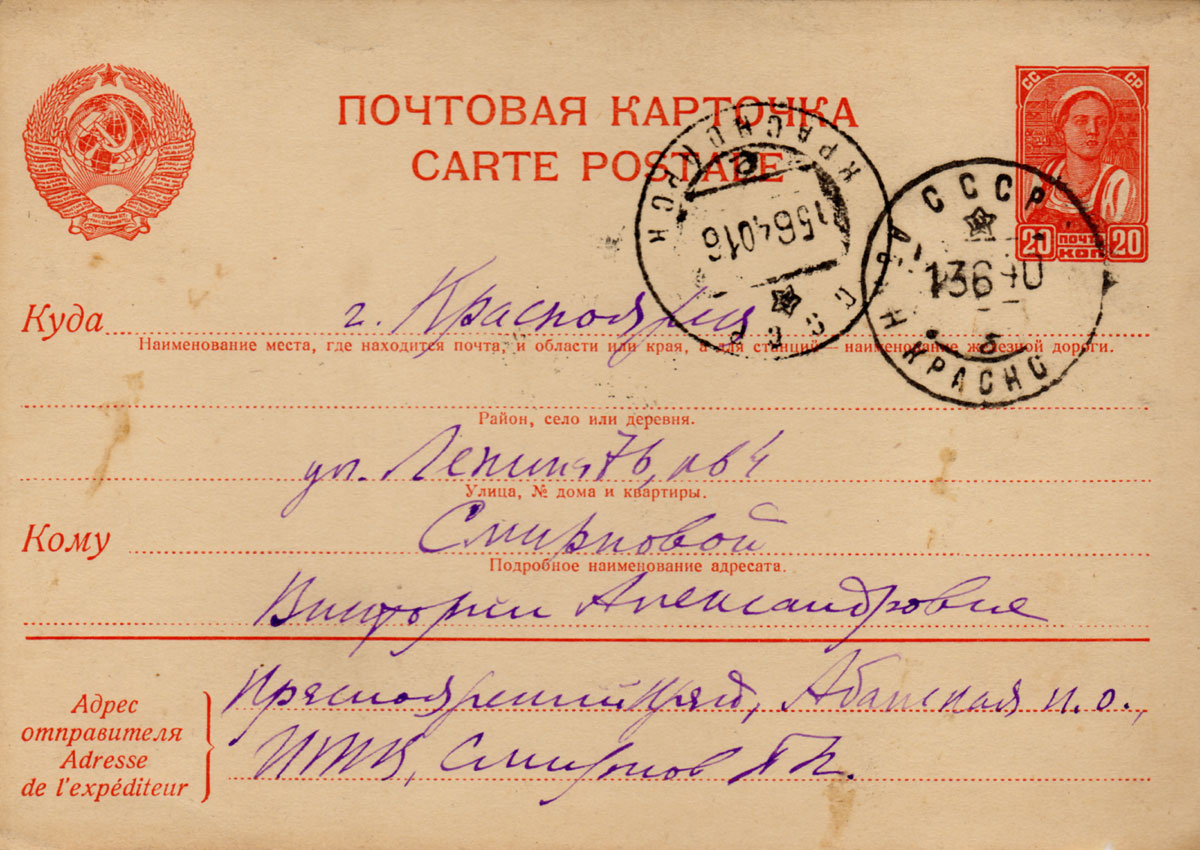 ПОЧТОВАЯ КАРТОЧКА
CARTE POSTALE
СС СР
20 ПОЧТ КОП 20
КРАСНОЯРСК
15 6 40 16
СССР
СССР
13 6 40
КРАСНО
Куда г. Красноярск
Наименование места, где находится почта, и области или края, а для станций — наименование железной дороги.
Район, село или деревня.
ул. Ленина 76, кв 4
Улица, № дома и квартиры.
Кому Смирновой
Подробное наименование адресата.
Виктории Александровне
Адрес отправителя
Adresse de l'expéditeur
Красноярский край, Абанская п. о.,
Смирнов